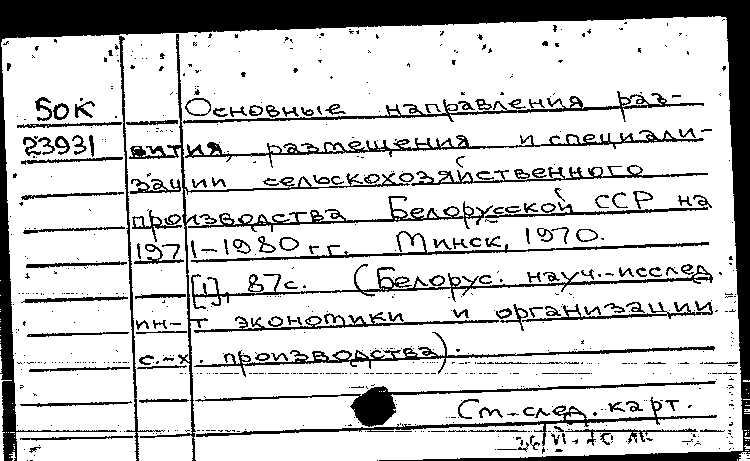 БОК Основные направления раз-
23931 вития, размещения и специали-
зации сельскохозяйственного
производства Белорусской ССР на
1971-1980 гг. Минск, 1970.
[1], 87с. (Белорус. науч.-исслед.
ин-т экономики и организации
с.-х. производства).
См-след. карт.
26/VI-70